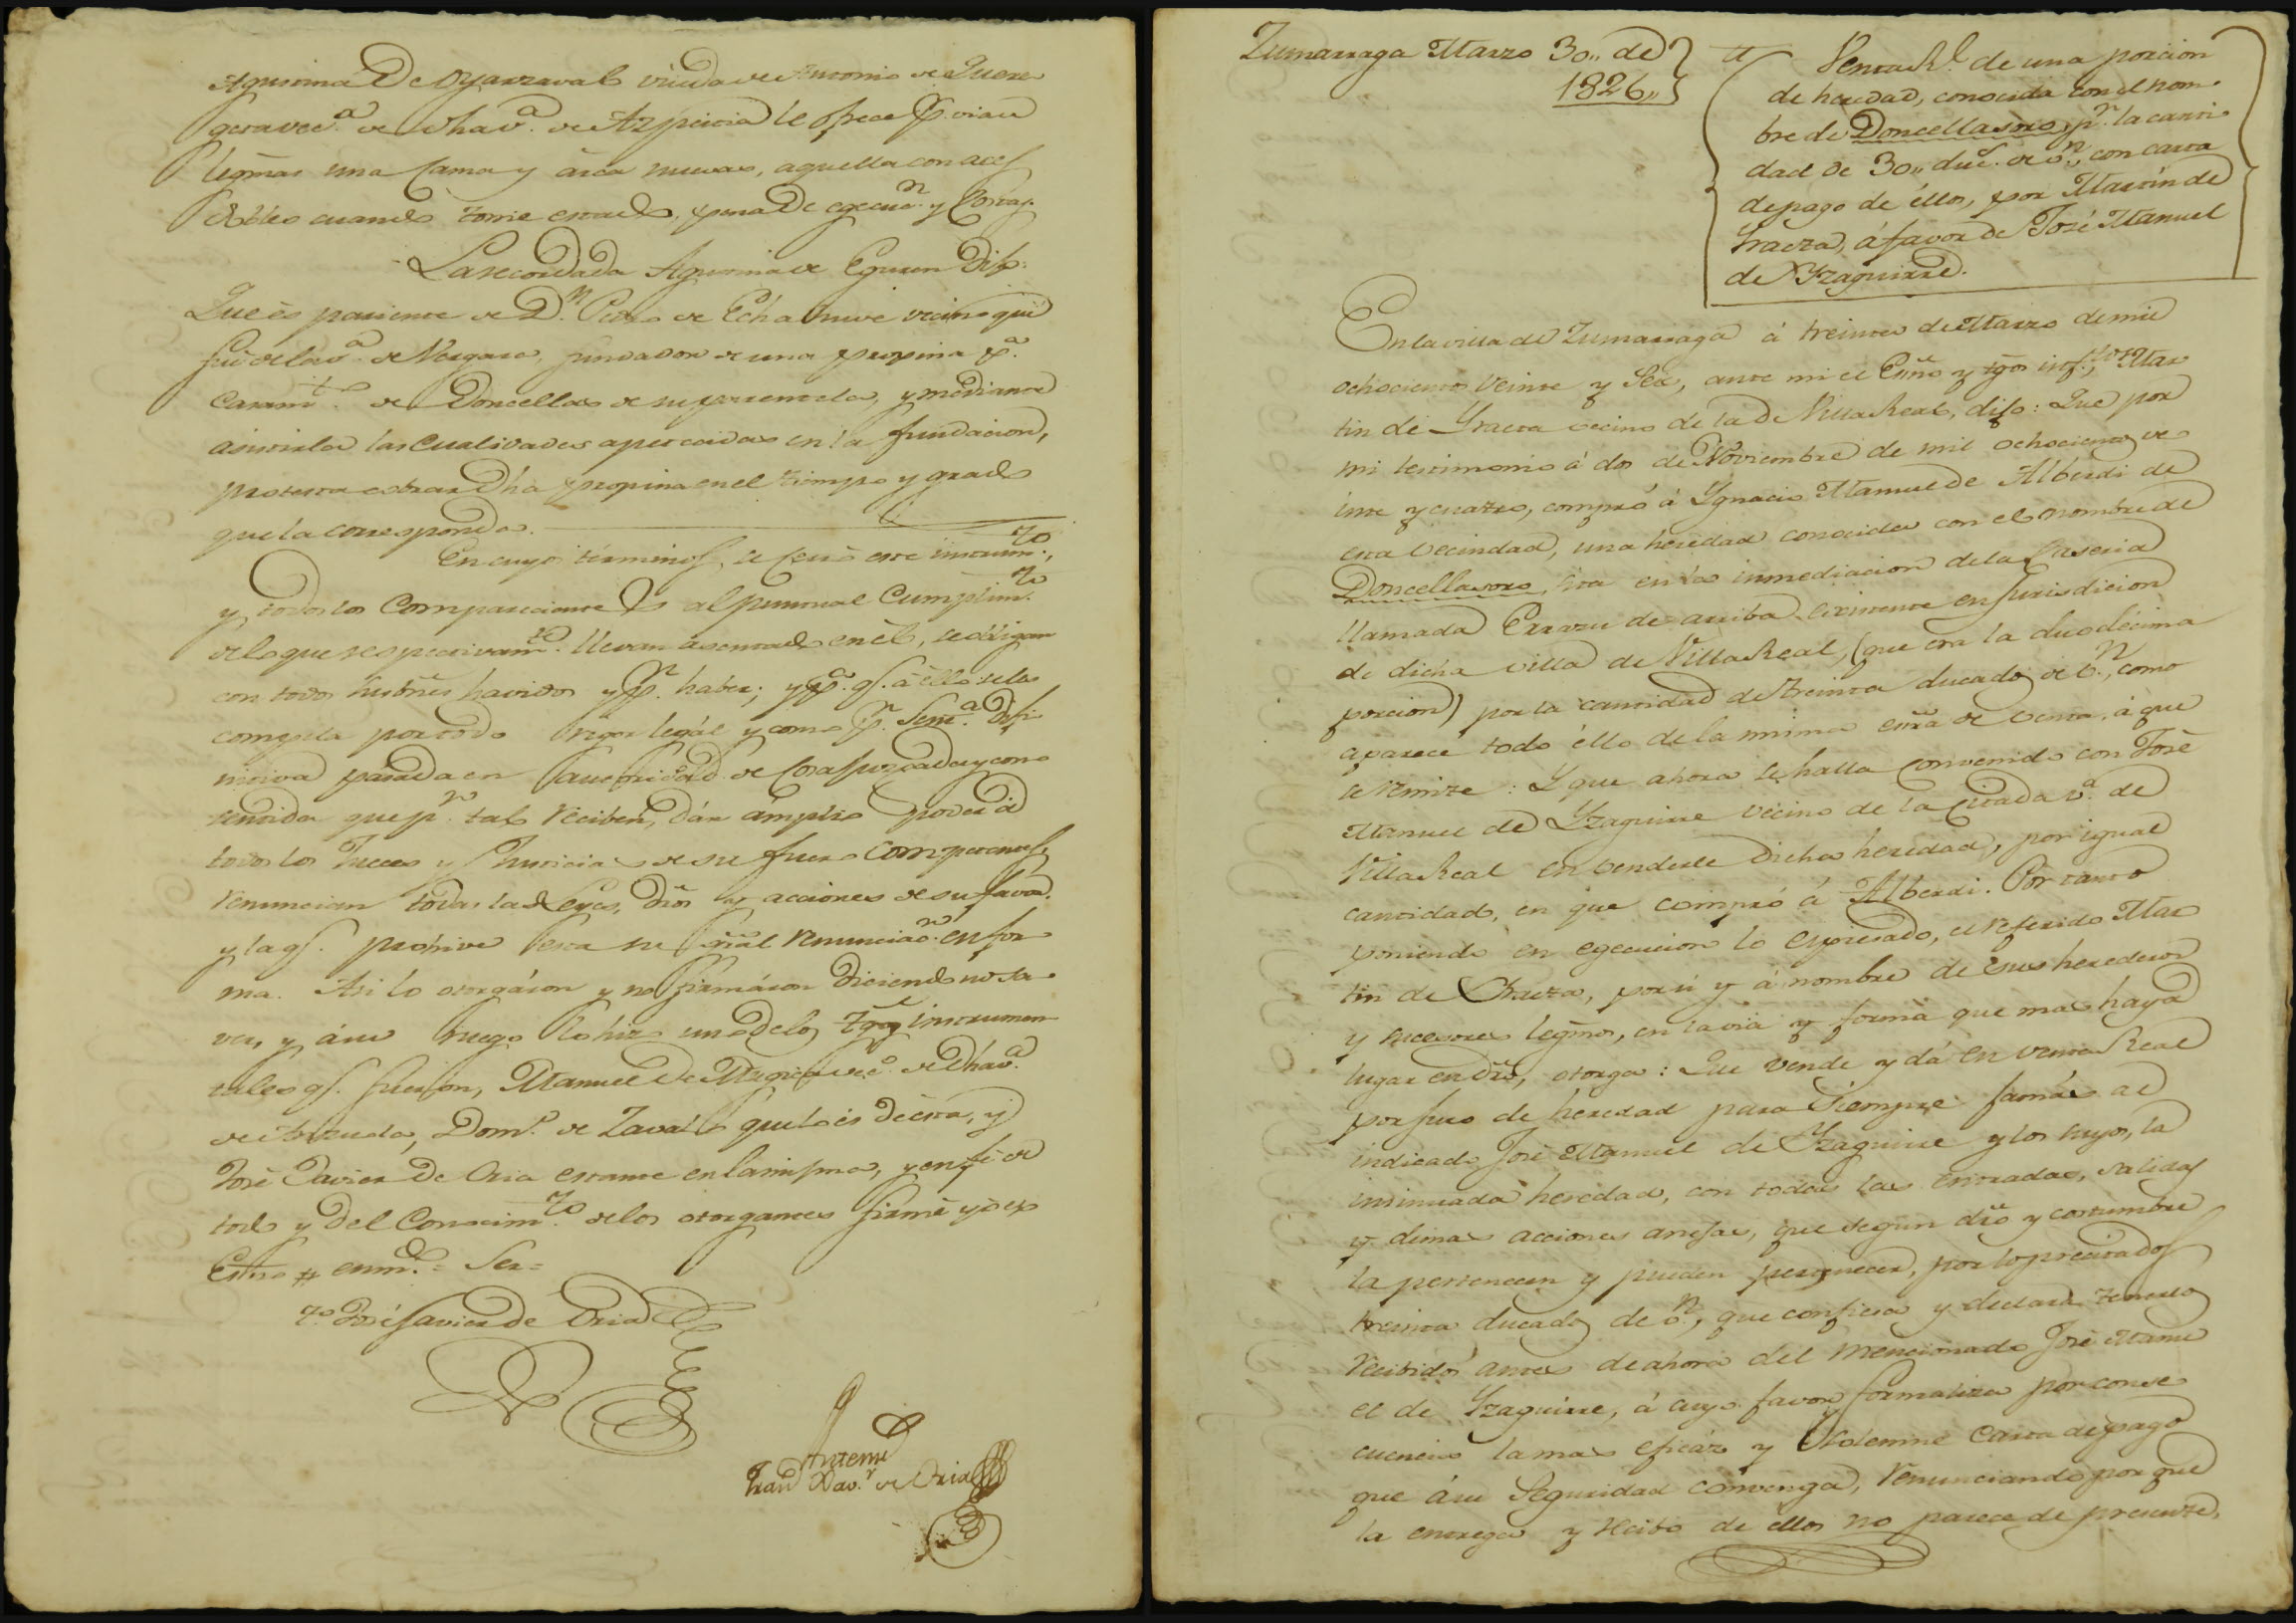 Agustina De Oyarzaval viuda de Antonio de Quere
getavec.ª de dha v.ª de Azpeitia le ofrece p.r via de
legmas una Cama y arca nuevas, aquella con aces
dobles cuando tome estado, pena De egecuc.n y Costas.
La recordada Agustina de Eguren Dijo:
Que es pariente de D.n Pedro de Echaluuve vecino que
fue de la v.ª de Vergara, fundador de una propina p.ª
Casam.to de Doncellas de su parentela, y mediante
asistirla las cualidades apetecidas en la fundacion,
protesta cobrar Dha propina en el tiempo y grado
que la corresponda.
En cuyos terminos, se cerró este instrum.to,
y todos los Comparecientes al puntual Cumplim.to
de lo que respectivam.te llevan asentado en él, se obligan
con todos sus bñes havidos y p.r haber; y p.ª q.e á ello se les
compela por todo rigor legál y como p.r Sent.ª Difi
nitiva pasada en autoridad de Cosa Juzgada y con
sentida que p.r tal reciben, dán ámplio poder á
todos los Jueces y Justicias de su fuero competentes,
renuncian todas las Leyes, dros y acciones de su favor,
y la q.e prohive esta su gñral renunciac.n en for
ma. Asi lo otorgáron y no firmáron Diciendo no sa
ver, y á su ruego lo hizo uno de los tgos instrumen
tales q.e fueron, Manuel De Mugica vec.º de Dha v.ª
de Anzuola, Dom.º de Zavalo que lo es De esta, y
José Xavier De Oria estante en la misma, y en fé de
todo y Del Conocim.to de los otorgantes firmé yo el
Esñno # enm.do = Ser =
T.º José Xavier de Oria
Antemi
Juan Xav.r de Oria
Zumarraga Marzo 30,, de
1826,,
Venta Rl. de una porcion
de heredad, conocida con el nom
bre de Doncellasoro, p.r la canti
dad de 30,, duc.s de v.n, con carta
de pago de éllos, por Martín de
Yraeta, á favor de José Manuel
de Yzaguirre.
En la villa de Zumarraga á treinta de Marzo de mil
ochocientos veinte y Seis, ante mi el Esñno y tgos inf.tos Mar
tin de Yraeta vecino de la de Villa Real, dijo: Que por
mi testimonio á dos de Noviembre de mil ochocientos ve
inte y cuatro, compró á Ygnacio Manuel de Alberdi de
esta vecindad, una heredad conocida con el nombre de
Doncellasoro, sita en la inmediacion de la Caseria
llamada Errazu de arriba existente en Jurisdicion
de dicha villa de Villa Real, (que era la duodécima
porcion) por la cantidad de treinta ducados de v.n, como
aparece todo éllo de la misma esñra de venta, á que
se remite: Y que ahora se halla convenido con José
Manuel de Yzaguirre vecino de la citada v.ª de
Villa Real en venderle dicha heredad, por igual
cantidad, en que compró á Alberdi. Por tanto
poniendo en egecucion lo expresado, el referido Mar
tin de Yraeta, por si y á nombre de sus herederos
y sucesores legmos, en la via y forma que mas haya
lugar en dro, otorga: Que vende y dá en venta Real
por juro de heredad para Siempre Jamás al
indicado José Manuel de Yzaguirre y los suyos, la
insinuada heredad, con todas las entradas, salidas
y demas acciones anejas, que segun dro y costumbre
la pertenecen y pueden pertenecer, por los precitados
treinta ducados de v.n, que confiesa y declara tenerlos
recibidos antes de ahora del mencionado José Manu
el de Yzaguirre, á cuyo favor formaliza por conse
cuencia la mas eficáz y Solemne Carta de pago
que á su Seguridad convenga, renunciando por que
la entrega y recibo de ellos no parece de presente,